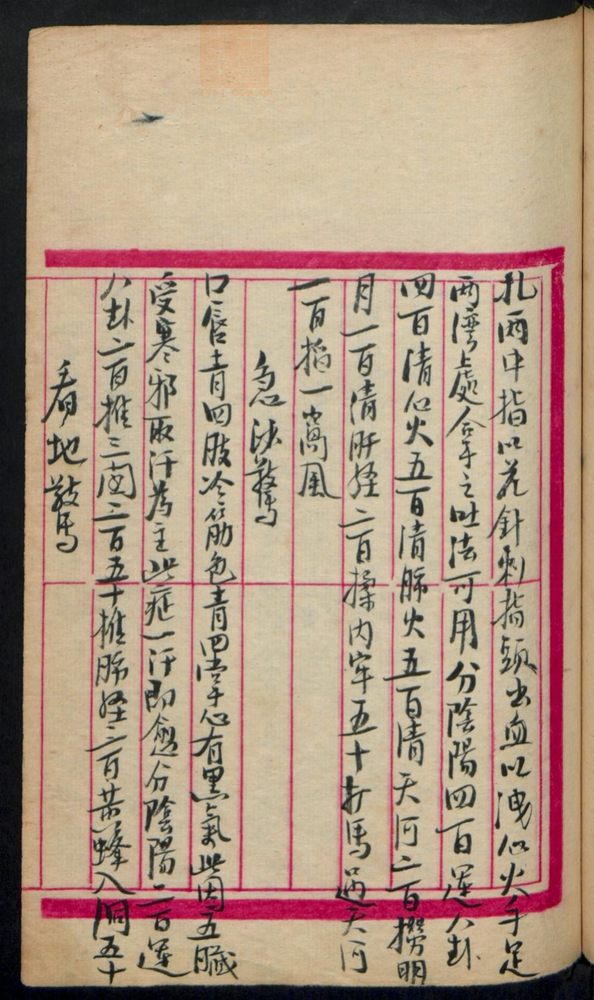 扎兩中指以羌針刺指頭出血以洩心火手足
兩灣處合手之吐法可用分陰陽四百運八卦
四百清心火五百清肺火五百清天河二百撈明
月一百清肝經二百揉内牢五十打馬過天河
一百掐一窩風
急沙驚
口唇青四肢冷筋色青四掌心有黑氣此因五臟
受寒邪取汗為主此症一汗即愈分陰陽二百運
八卦二百推三関二百五十推肺經二百黄蜂入洞五十
看地驚